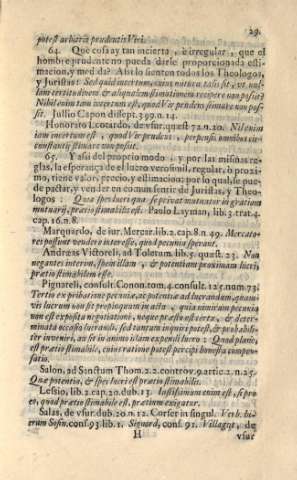 29.
potest arbitrio prudentis Viri.
64. Que cosa ay tan incierta, è irregular, que el
hombre prudente no pueda dàrle proporcionada esti-
macion, y medida? Assi lo sienten todos los Theologos,
y Juristas: Sed quid incertum, cuius natura talis sit, ut nul-
lam certitudinem & aliqualem estimationem recipere non possit?
Nihil enim tam incertum est, quod Vir prudens estimare non pos-
sit. Jullio Capon discept. 399. n. 14.
Honorato Leotardo, de vsur. quæst 72. n. 20. Nil enim
tam incertum est, quod Vir prudens, perpensis omnibus cir-
constantijs estimare non possit.
65. Y assi del proprio modo, y por las mismas re-
glas, la esperança de el lucro verosimil, regular, ò proxi-
mo, tiene valor, precio, y estimacion; por lo qual se pue-
de pactar, y vender en comun sentir de Juristas, y Theo-
logos: Quia spes lucri qua se privat mutuator in gratiam
mutuarij, pretio estimabilis est. Paulo Layman, lib. 3. trat. 4.
cap. 16. n. 8.
Marquardo, de iur. Mercat. lib. 2. cap. 8. n. 49. Mercato-
res possunt vendere interesse, quod pecunia sperant.
Andreas Victoreli, ad Toletum, lib. 5. quæst. 23. Non
negantes interim, spem illam, & potentiam proximam lucri,
prætio estimabilem esse.
Pignareli, consult. Canon. tom. 4. consult. 125. num. 73.
Tertio ex privatione pecuniæ, ac potentiæ ad lucrandum, quam-
vis lucrum non sit propinquum in actu, quia nimirum pecunia
non est exposita negotiationi, neque parata est certa, & deter-
minata occasio lucrandi, sed tantum inquiri potest, & probabili-
ter inveniri, au sit in animo illam expendi lucro: Quod planè,
est prætio estimabile, cuius ratione potest percipi honesta compen-
satio.
Salon, ad Sanctum Thom. 2. 2. controv. 9. artic. 2. n. 25.
Quæ potentia, & spes lucri est prætio estimabilis.
Lessio, lib. 2. cap. 20. dub. 13. Iustissimum enim est, se pro
eo, quod prætio estimabile est, prætium exigatur.
Salas, de vsur. dub. 20. n. 12. Corser in singul. Verb. bi-
erum Sosin. cons. 93. lib. 1. Signord, cons. 91. Villagut, de
H vsur